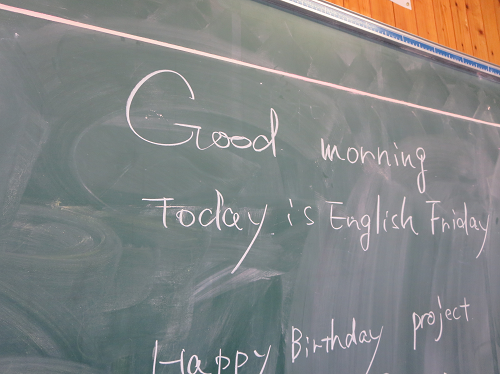 Good morning
Today is English Friday
Happy Birthday project